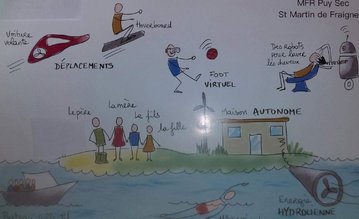 MFR Puy Sec
St Martin de Fraigne
Voiture
volante
Hoverboard
DÉPLACEMENTS
FOOT
VIRTUEL
Des Robots
pour laver
les cheveux
Le père
la mère
le fils
la fille
Maison AUTONOME
Energie
HYDROLIENNE